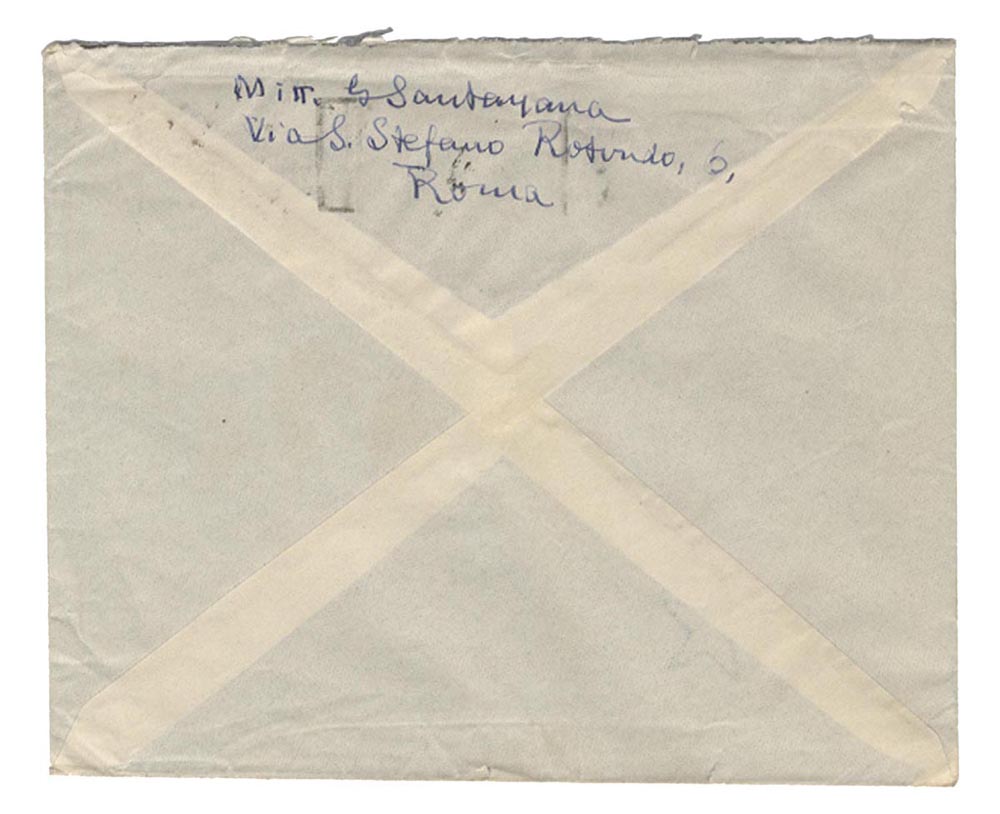 Mitt. G Santayana
Via S. Stefano Rotondo, 6,
Roma